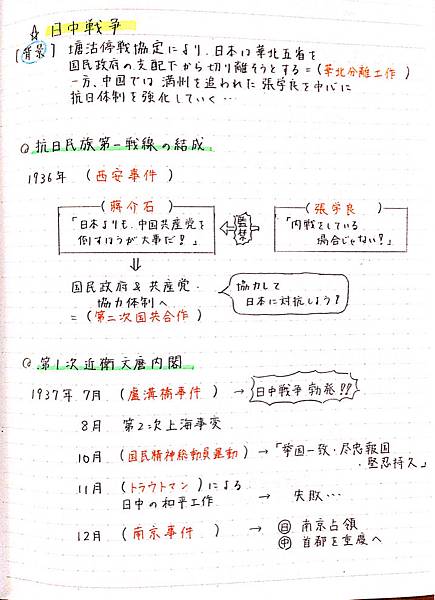 ☆ 日中戦争
[背景] 塘沽停戦協定により、日本は華北五省を
国民政府の支配下から切り離そうとする=(華北分離工作)
一方、中国では満州を追われた張学良を中心に
抗日体制を強化していく…
Q 抗日民族第一戦線の結成
1936年 (西安事件)
(蔣介石)
「日本よりも、中国共産党を
倒すほうが大事だ!」
監禁
(張学良)
「内戦をしている
場合じゃない?」
⇓
国民政府&共産党・
協力体制へ
=(第二次国共合作)
協力して
日本に対抗しよう?
Q 第1次近衛文麿内閣
1937年 7月 (盧溝橋事件) → 日中戦争勃発!!
8月 第2次上海事変
10月 (国民精神総動員運動) →「挙国一致・尽忠報国
・堅忍持久」
11月 (トラウトマン)による
日中の和平工作 → 失敗…
12月 (南京事件) → ㊐ 南京占領
㊥ 首都を重慶へ